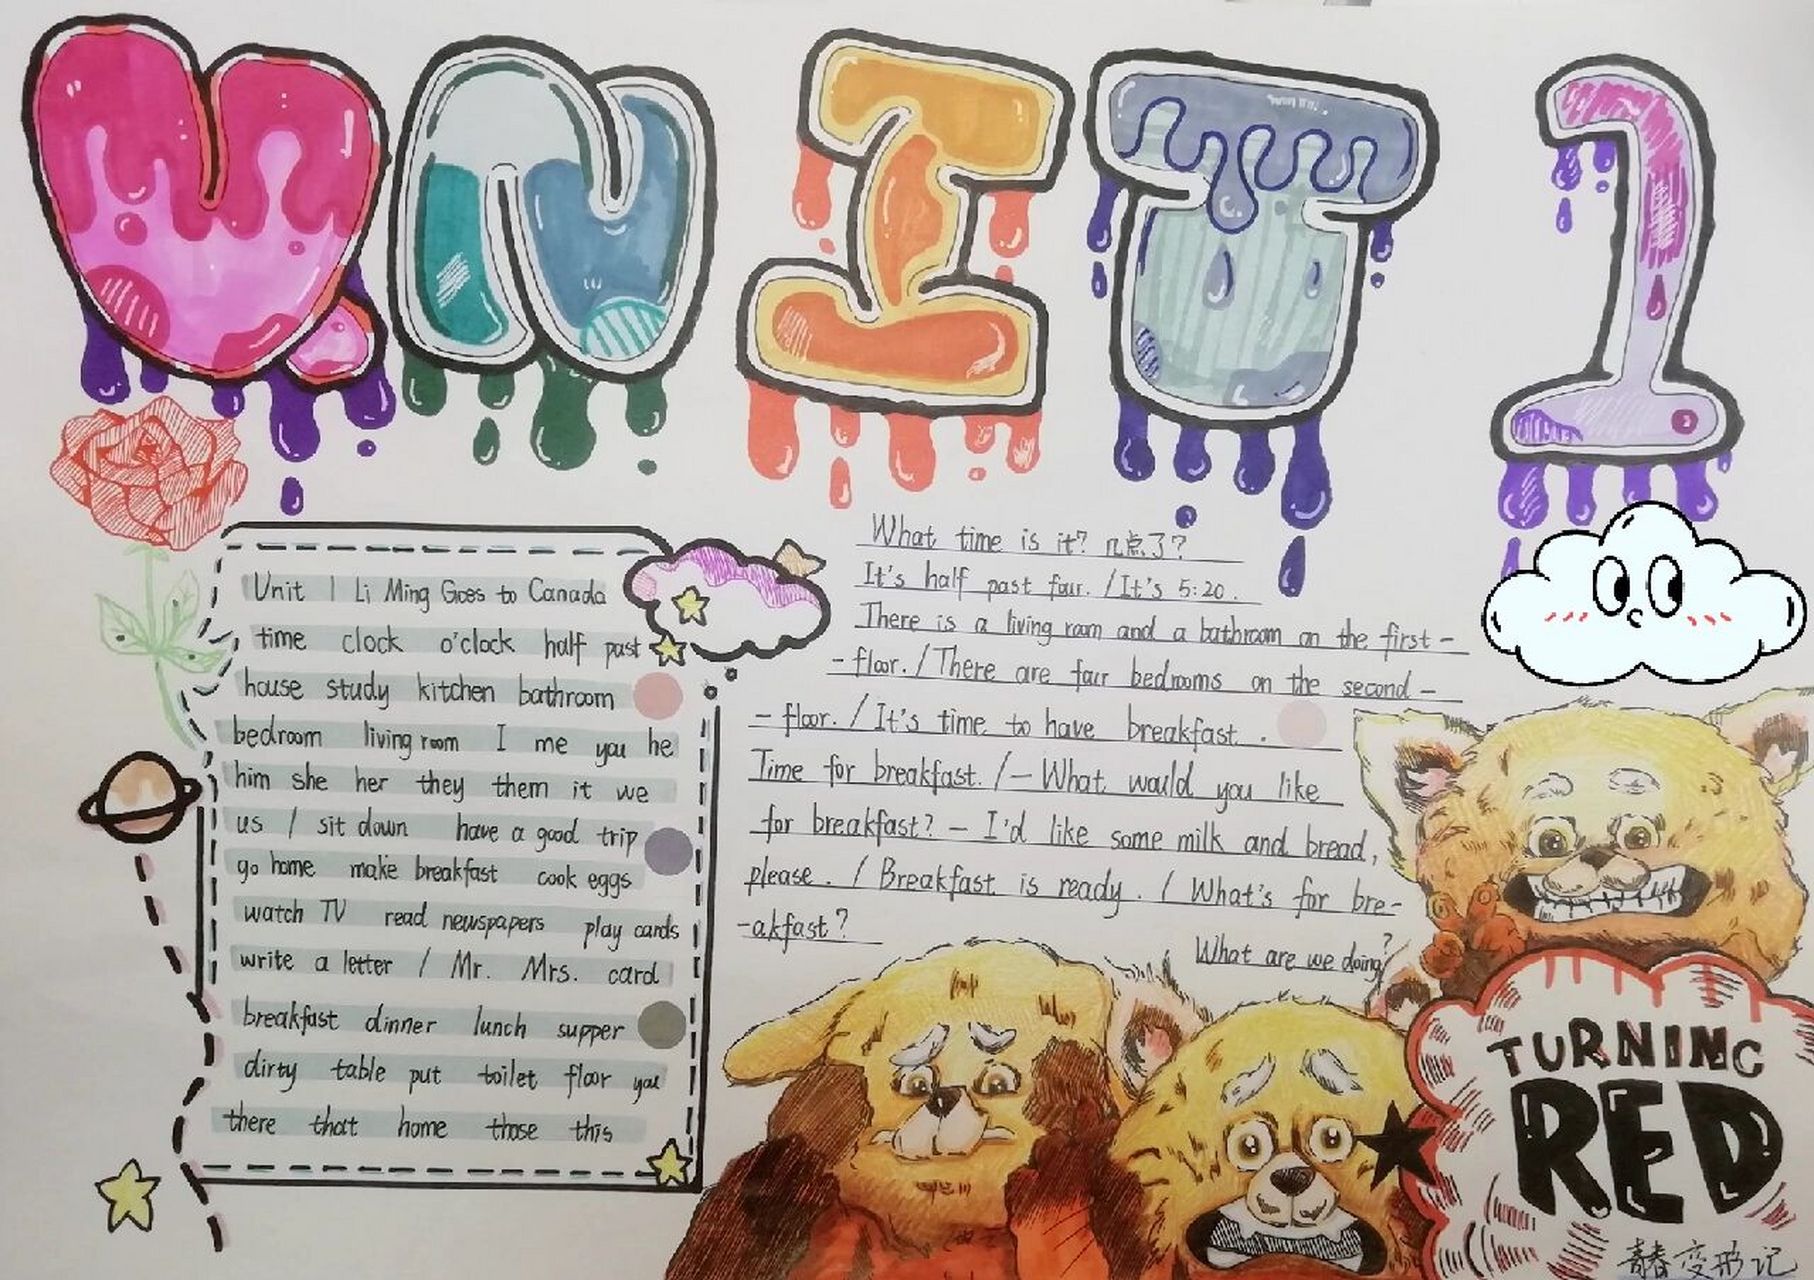 UNIT 1
Unit 1 Li Ming Goes to Canada
time clock o'clock half past
house study kitchen bathroom
bedroom living room I me you he
him she her they them it we
us / sit down have a good trip
go home make breakfast cook eggs
watch TV read newspapers play cards
write a letter / Mr. Mrs. card
breakfast dinner lunch supper
dirty table put toilet floor you
there that home those this
What time is it? 几点了?
It's half past four. /It's 5:20.
There is a living room and a bathroom on the first-
-floor. /There are four bedrooms on the second-
-floor. / It's time to have breakfast.
Time for breakfast. /— What would you like
for breakfast? — I'd like some milk and bread,
please. / Breakfast is ready. / What's for bre-
-akfast?
What are we doing?
TURNING
RED
青春变形记